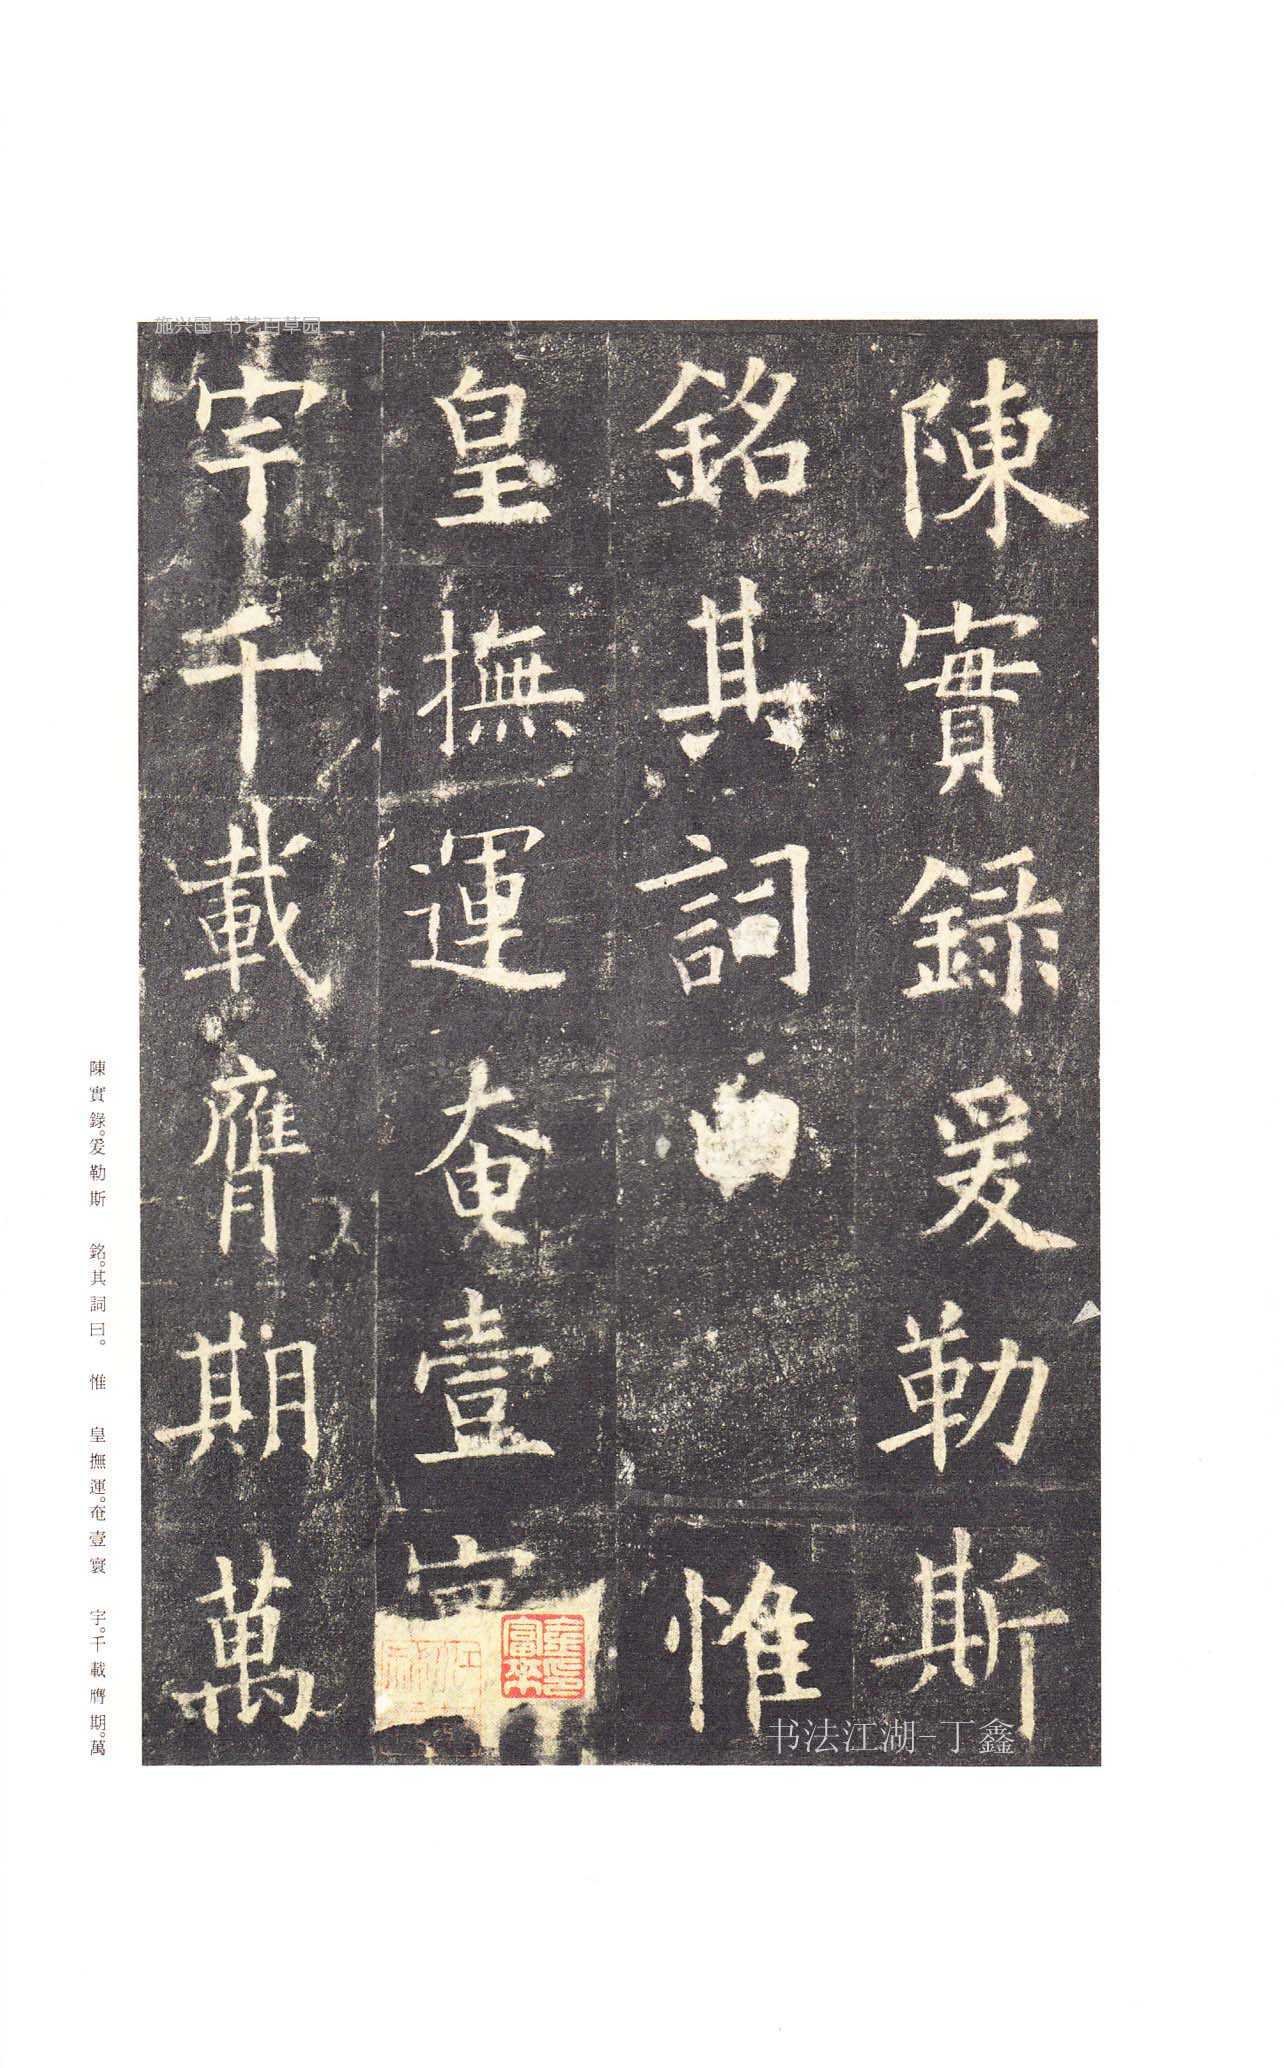 施兴国 书艺百草园
陳實録爰勒斯
銘其詞曰惟
皇撫運奄壹寰
宇千載膺期萬
陳實錄。爰勒斯　銘。其詞曰。　惟　皇撫運。奄壹寰　宇。千載膺期。萬
书法江湖-丁鑫